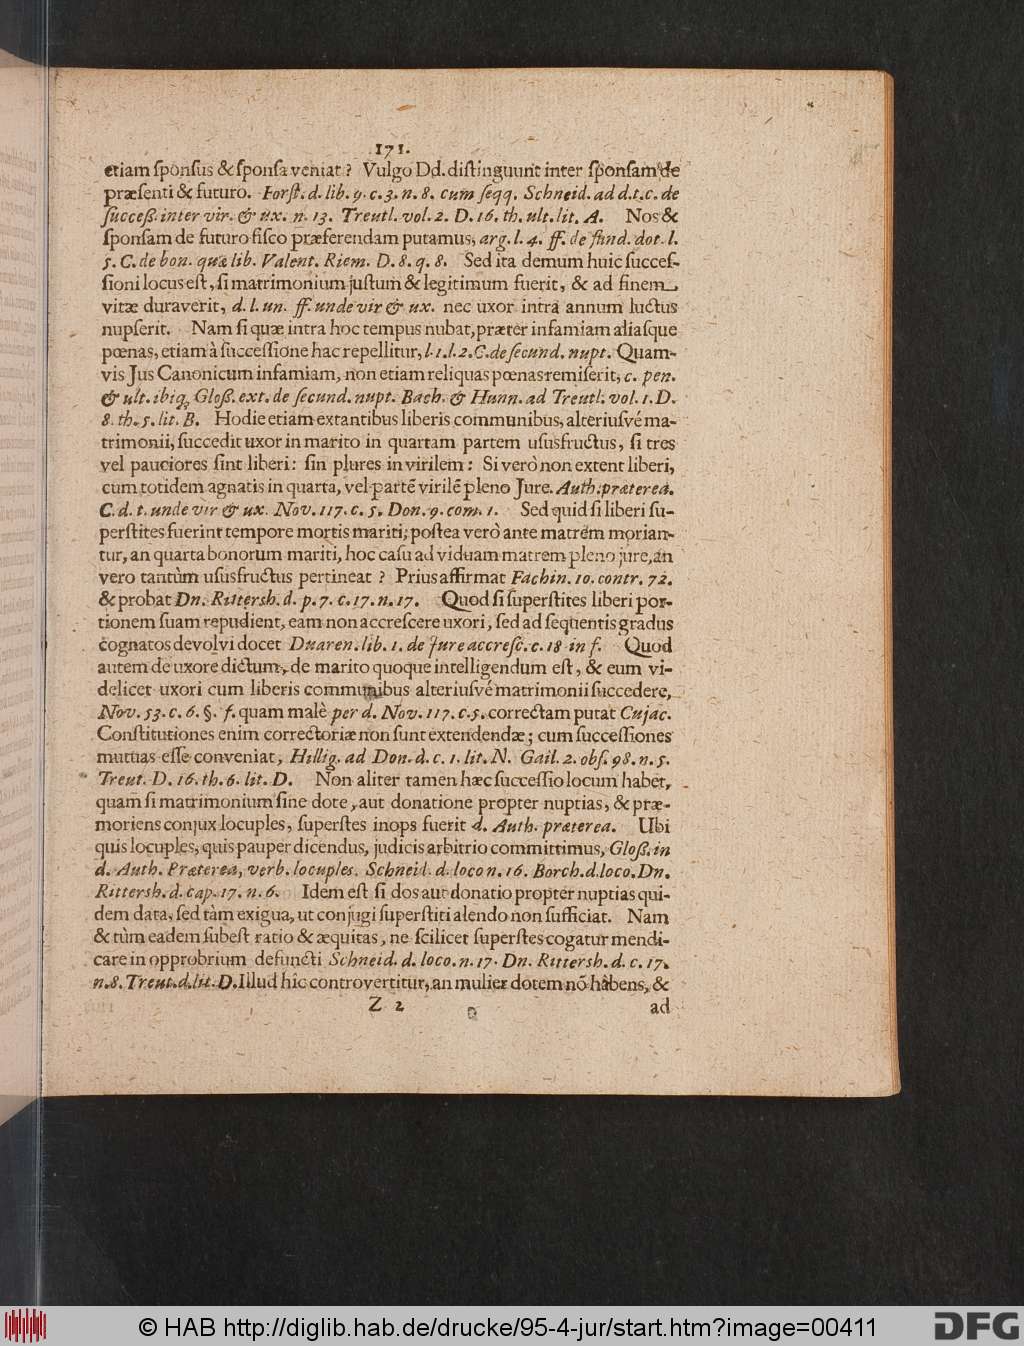 171.
etiam ſponſus & ſponſa veniat? Vulgo Dd. diſtinguunt inter ſponſam de
præſenti & futuro. Forſt. d. lib. 9. c. 3. n. 8. cum ſeqq. Schneid. ad d. t. c. de
ſucceß. inter vir. & ux. n. 13. Treutl. vol. 2. D. 16. th. ult. lit. A. Nos &
ſponſam de futuro fiſco præferendam putamus, arg. l. 4. ff. de fund. dot. l.
5. C. de bon. quæ lib. Valent. Riem. D. 8. q. 8. Sed ita demum huic ſucceſ-
ſioni locus eſt, ſi matrimonium juſtum & legitimum fuerit, & ad finem
vitæ duraverit, d. l. un. ff. unde vir & ux. nec uxor intra annum luctus
nupſerit. Nam ſi quæ intra hoc tempus nubat, præter infamiam aliaſque
pœnas, etiam à ſucceſſione hac repellitur, l. 1. l. 2. C. de ſecund. nupt. Quam-
vis Jus Canonicum infamiam, non etiam reliquas pœnas remiſerit, c. pen.
& ult. ibiq; Gloß. ext. de ſecund. nupt. Bach. & Hunn. ad Treutl. vol. 1. D.
8. th. 5. lit. B. Hodie etiam extantibus liberis communibus, alteriuſvé ma-
trimonii, ſuccedit uxor in marito in quartam partem uſusfructus, ſi tres
vel pauciores ſint liberi: ſin plures in virilem: Si verò non extent liberi,
cum totidem agnatis in quarta, vel partē virilē pleno Jure. Auth. præterea.
C. d. t. unde vir & ux. Nov. 117. c. 5. Don. 9. com. 1. Sed quid ſi liberi ſu-
perſtites fuerint tempore mortis mariti, poſtea verò ante matrem morian-
tur, an quarta bonorum mariti, hoc caſu ad viduam matrem pleno jure, an
vero tantùm uſusfructus pertineat? Prius affirmat Fachin. 10. contr. 72.
& probat Dn. Rittersh. d. p. 7. c. 17. n. 17. Quod ſi ſuperſtites liberi por-
tionem ſuam repudient, eam non accreſcere uxori, ſed ad ſequentis gradus
cognatos devolvi docet Duaren. lib. 1. de Jure accreſc. c. 18 in f. Quod
autem de uxore dictum, de marito quoque intelligendum eſt, & eum vi-
delicet uxori cum liberis communibus alteriuſvé matrimonii ſuccedere,
Nov. 53. c. 6. §. f. quam malè per d. Nov. 117. c. 5. correctam putat Cujac.
Conſtitutiones enim correctoriæ non ſunt extendendæ; cum ſucceſſiones
mutuas eſſe conveniat, Hillig. ad Don. d. c. 1. lit. N. Gail. 2. obſ. 98. n. 5.
Treut. D. 16. th. 6. lit. D. Non aliter tamen hæc ſucceſſio locum habet,
quam ſi matrimonium ſine dote, aut donatione propter nuptias, & præ-
moriens conjux locuples, ſuperſtes inops fuerit d. Auth. præterea. Ubi
quis locuples, quis pauper dicendus, judicis arbitrio committimus, Gloß. in
d. Auth. Præterea, verb. locuples. Schneid. d. loco n. 16. Borch. d. loco. Dn.
Rittersh. d. cap. 17. n. 6. Idem eſt ſi dos aut donatio propter nuptias qui-
dem data, ſed tàm exigua, ut conjugi ſuperſtiti alendo non ſufficiat. Nam
& tùm eadem ſubeſt ratio & æquitas, ne ſcilicet ſuperſtes cogatur mendi-
care in opprobrium defuncti Schneid. d. loco. n. 17. Dn. Rittersh. d. c. 17.
n. 8. Treut. d. lit. D. Illud hîc controvertitur, an mulier dotem nō habens, &
Z 2 ad
© HAB http://diglib.hab.de/drucke/95-4-jur/start.htm?image=00411
DFG